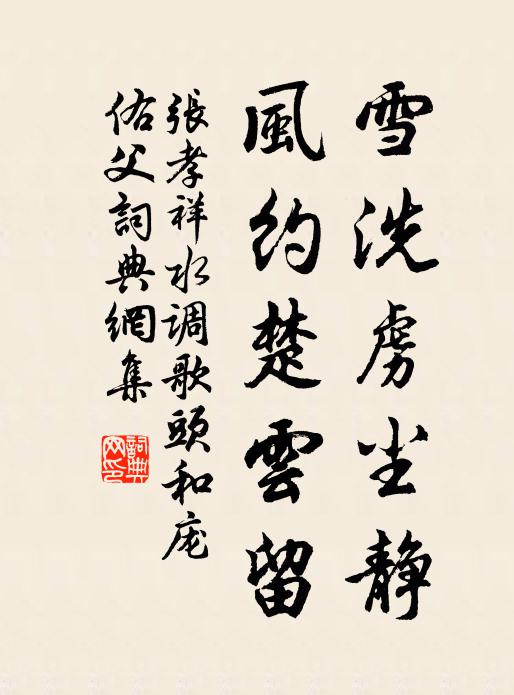 雪洗虏尘静
風约楚雲留
張孝祥水调歌頭和庞
佑父詞典網集
詞典网印